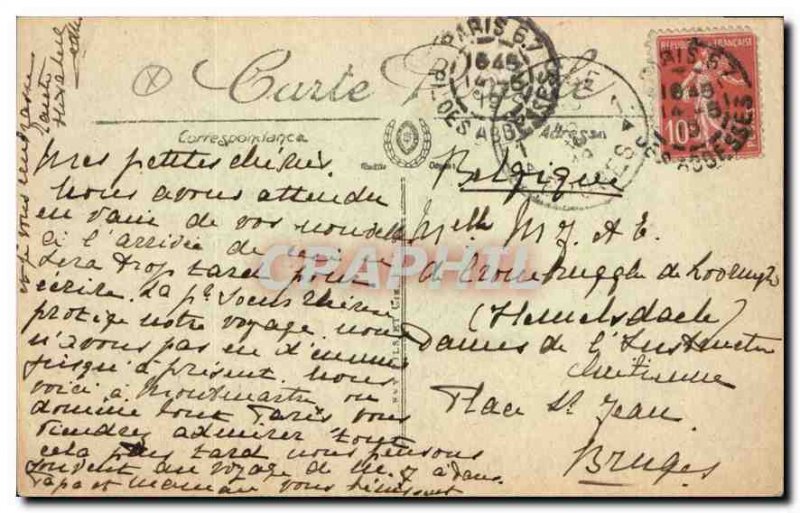 Carte
Correspondance
Adresse
PARIS 67
R. DES ABBESSES
REPUBLIQUE FRANÇAISE
10
Mes petites chéries
Nous avons attendu
en vain de vos nouvelles
à l'arrivée de
sera trop tard pour
écrire. La pte Soeur Thérèse
protège notre voyage. nous
n'avons pas eu d'ennuis
jusqu'à présent. Nous
voici à Montmartre ou
domine tout Paris vous
viendrez admirer tout
cela plus tard nous pensons
souvent au voyage de
Papa et Maman vous bénissent
et
Belgique
Melle M J. A E.
de Crombrugghe de Looringhe
(Hemelsdaele)
Dames de l'Instruction
chrétienne
Place St Jean
Bruges
CRAPHIL